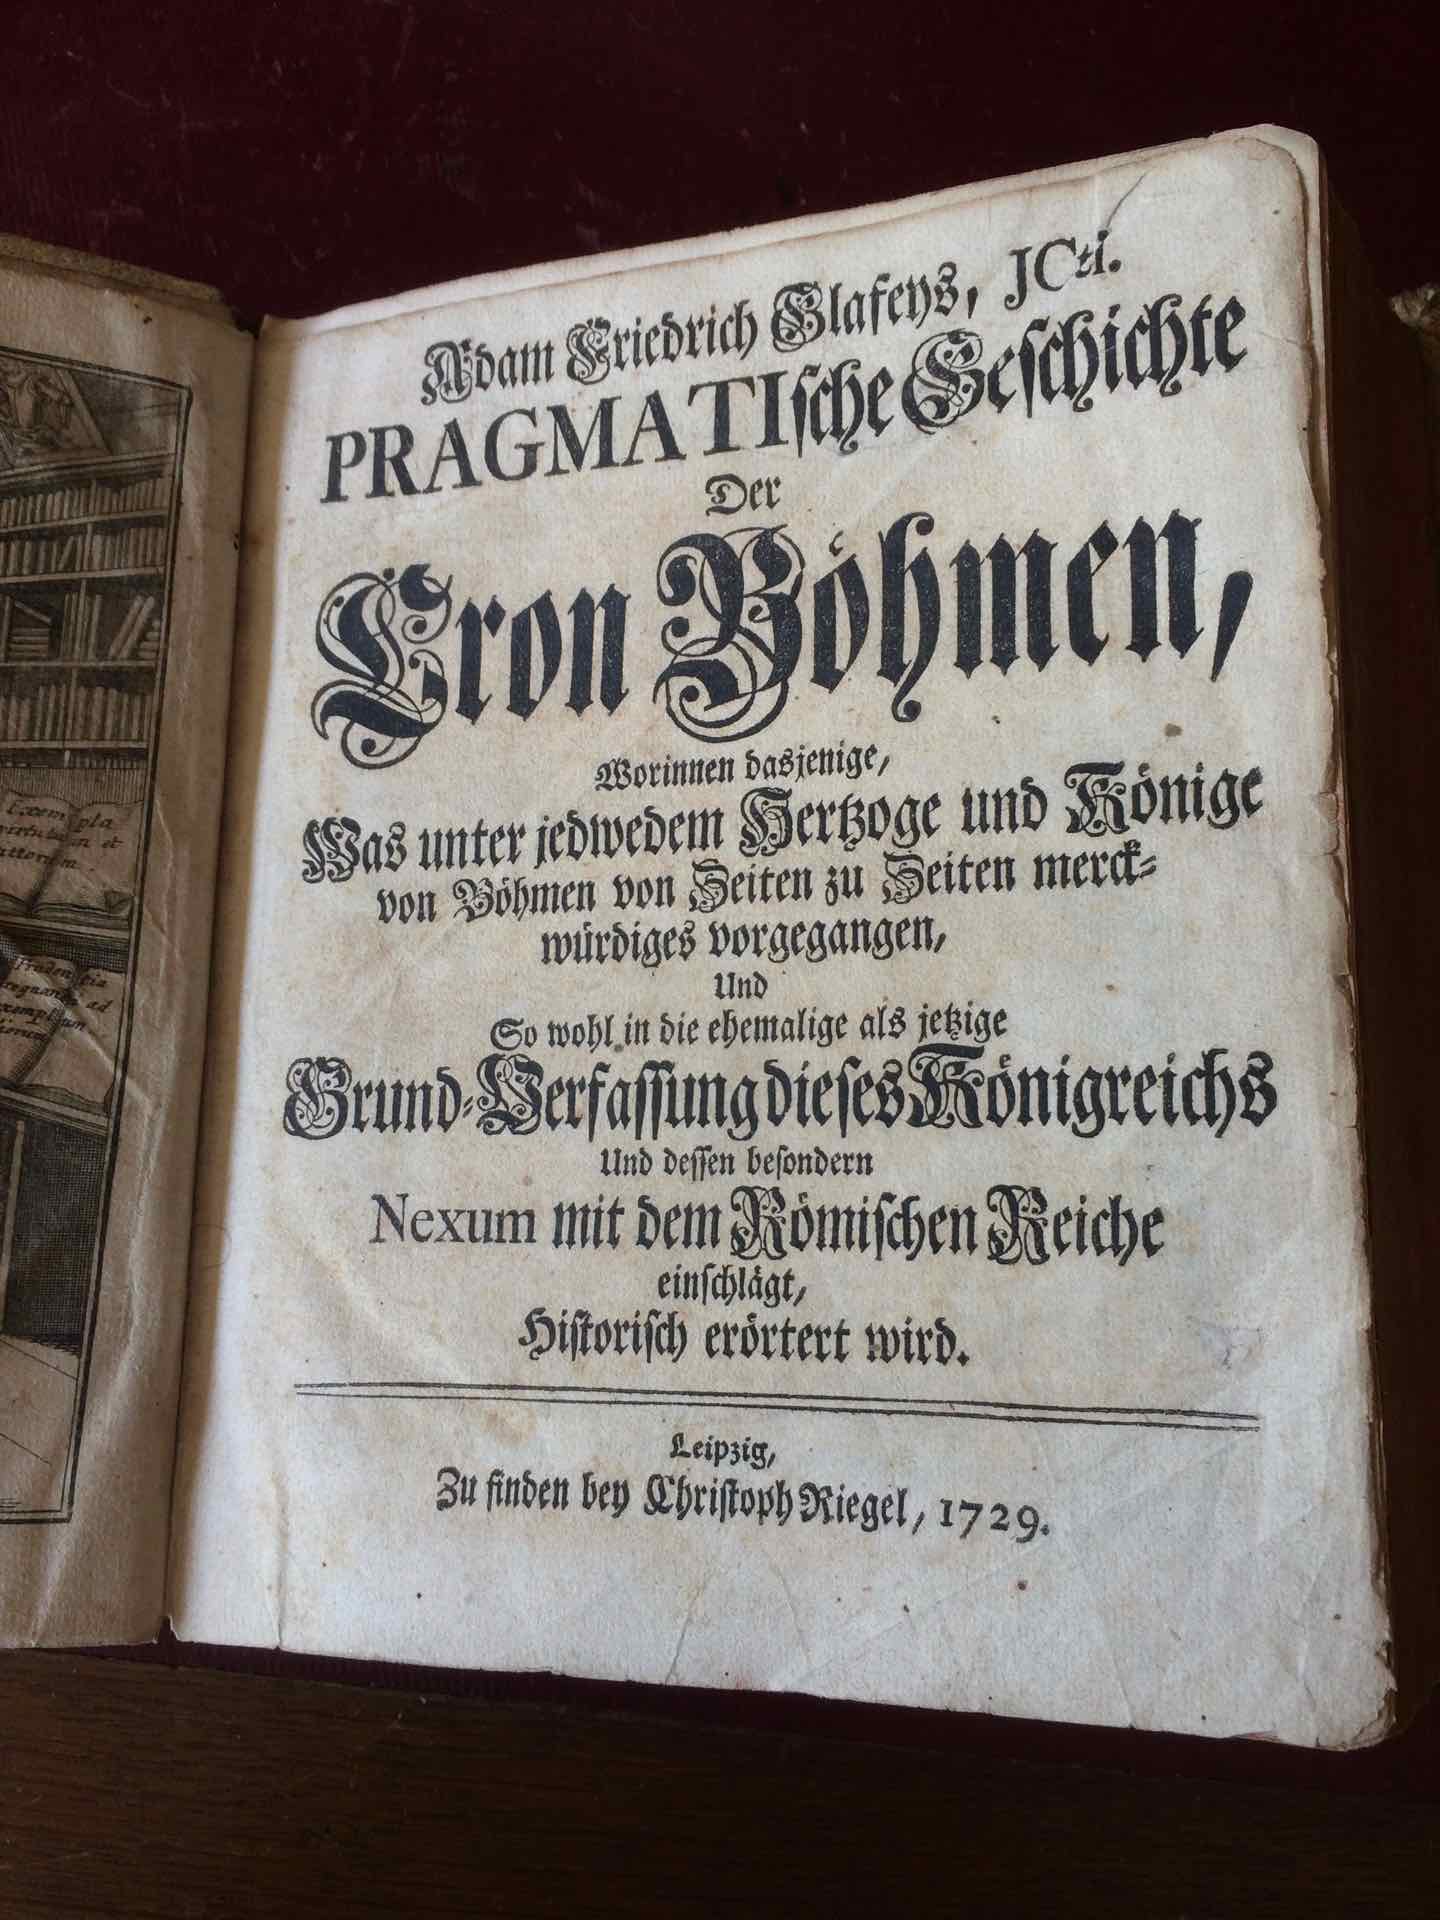 Exempla
virtutum et
Prudentia
regnandi ad
exemplum
Adam Friedrich Glafeys, JCti.
PRAGMATIſche Geſchichte
Der
Cron Böhmen,
Worinnen dasjenige,
Was unter jedwedem Hertzoge und Könige
von Böhmen von Zeiten zu Zeiten merck=
würdiges vorgegangen,
Und
So wohl in die ehemalige als jetzige
Grund=Verfaſſung dieſes Königreichs
Und deſſen beſondern
Nexum mit dem Römiſchen Reiche
einſchlägt,
Hiſtoriſch erörtert wird.
Leipzig,
Zu finden bey Chriſtoph Riegel, 1729.